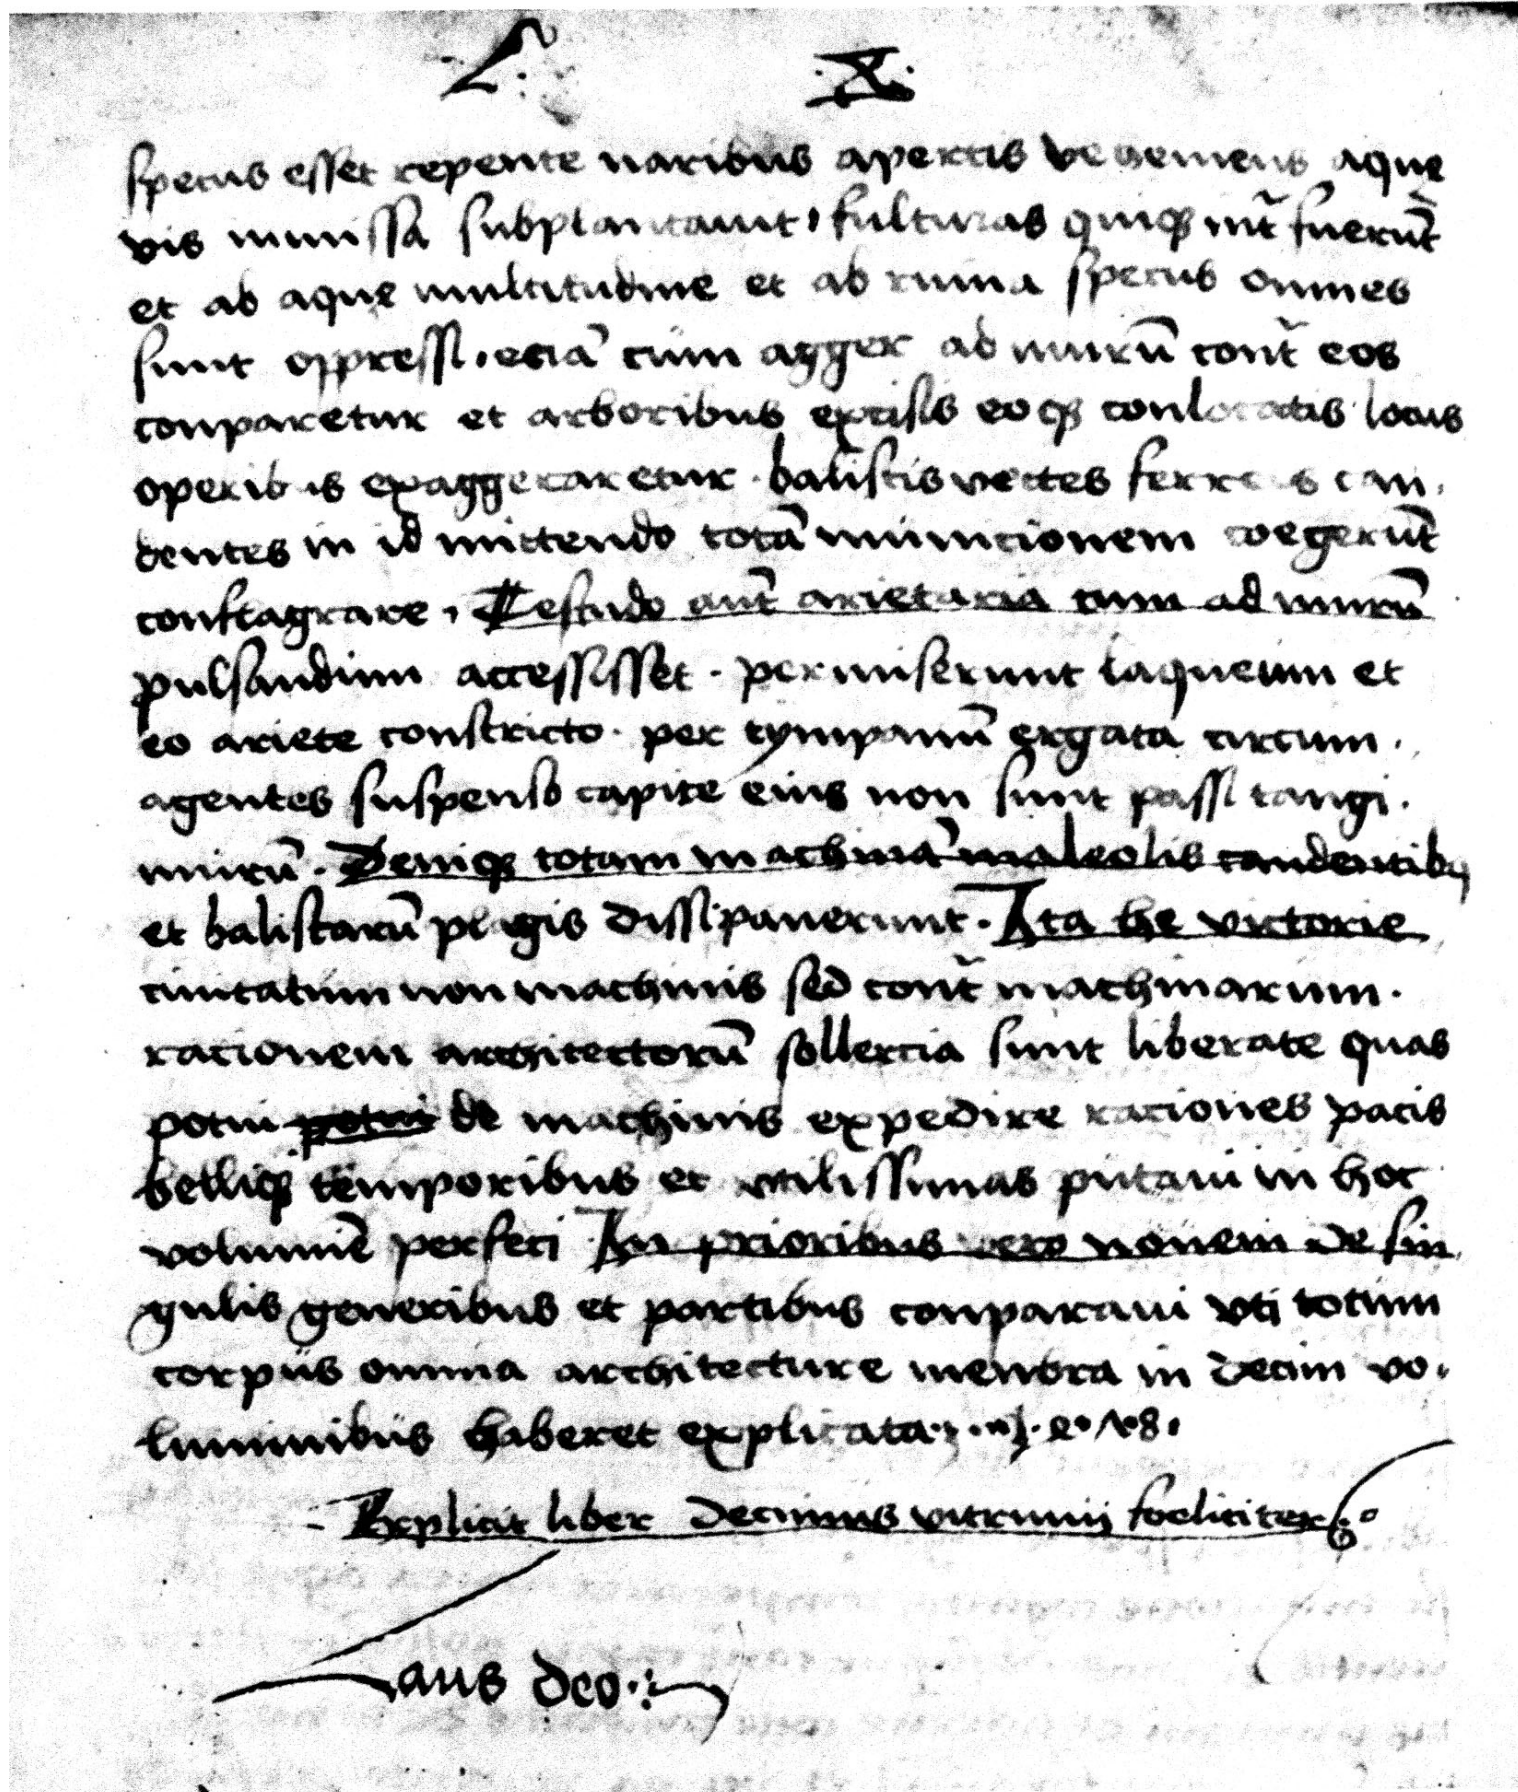 L. X.
specus esset repente naribus apertis vehemens aque
vis inmissa subplantauit fulturas quiq₃ int̃ fuerũt
et ab aque multitudine et ab ruina specus omnes
sunt oppressi. etiã cum agger ad murũ cont̃ eos
conparetur et arboribus excisis eoq₃ conlocatis locus
operibus exaggeraretur. balistis vectes ferreos can
dentes in id mittendo totã municionem coegerũt
conflagrare. Testudo aut̃ arietaria cum ad murũ
pulsandum accessisset. permiserunt laqueum et
eo ariete constricto. per tympanũ ergata circum.
agentes suspenso capite eius non sunt passi tangi.
murũ. Deniq₃ totam machinã maleolis candentibꝫ
et balistarũ plagis dissipauerunt. Ita he victorie
ciuitatum non machinis sed cont̃ machinarum.
racionem architectorũ sollercia sunt liberate quas
potui potui de machinis expedire raciones pacis
belliq₃ temporibus et vtilissimas putaui in hoc
voluminẽ perfeci In prioribus vero nouem de sin
gulis generibus et partibus conparaui vti totum
corpus omnia architecture menbra in decim vo.
luminibus haberet explicata
Explicit liber decimus vitruuij foeliciter
Laus deo